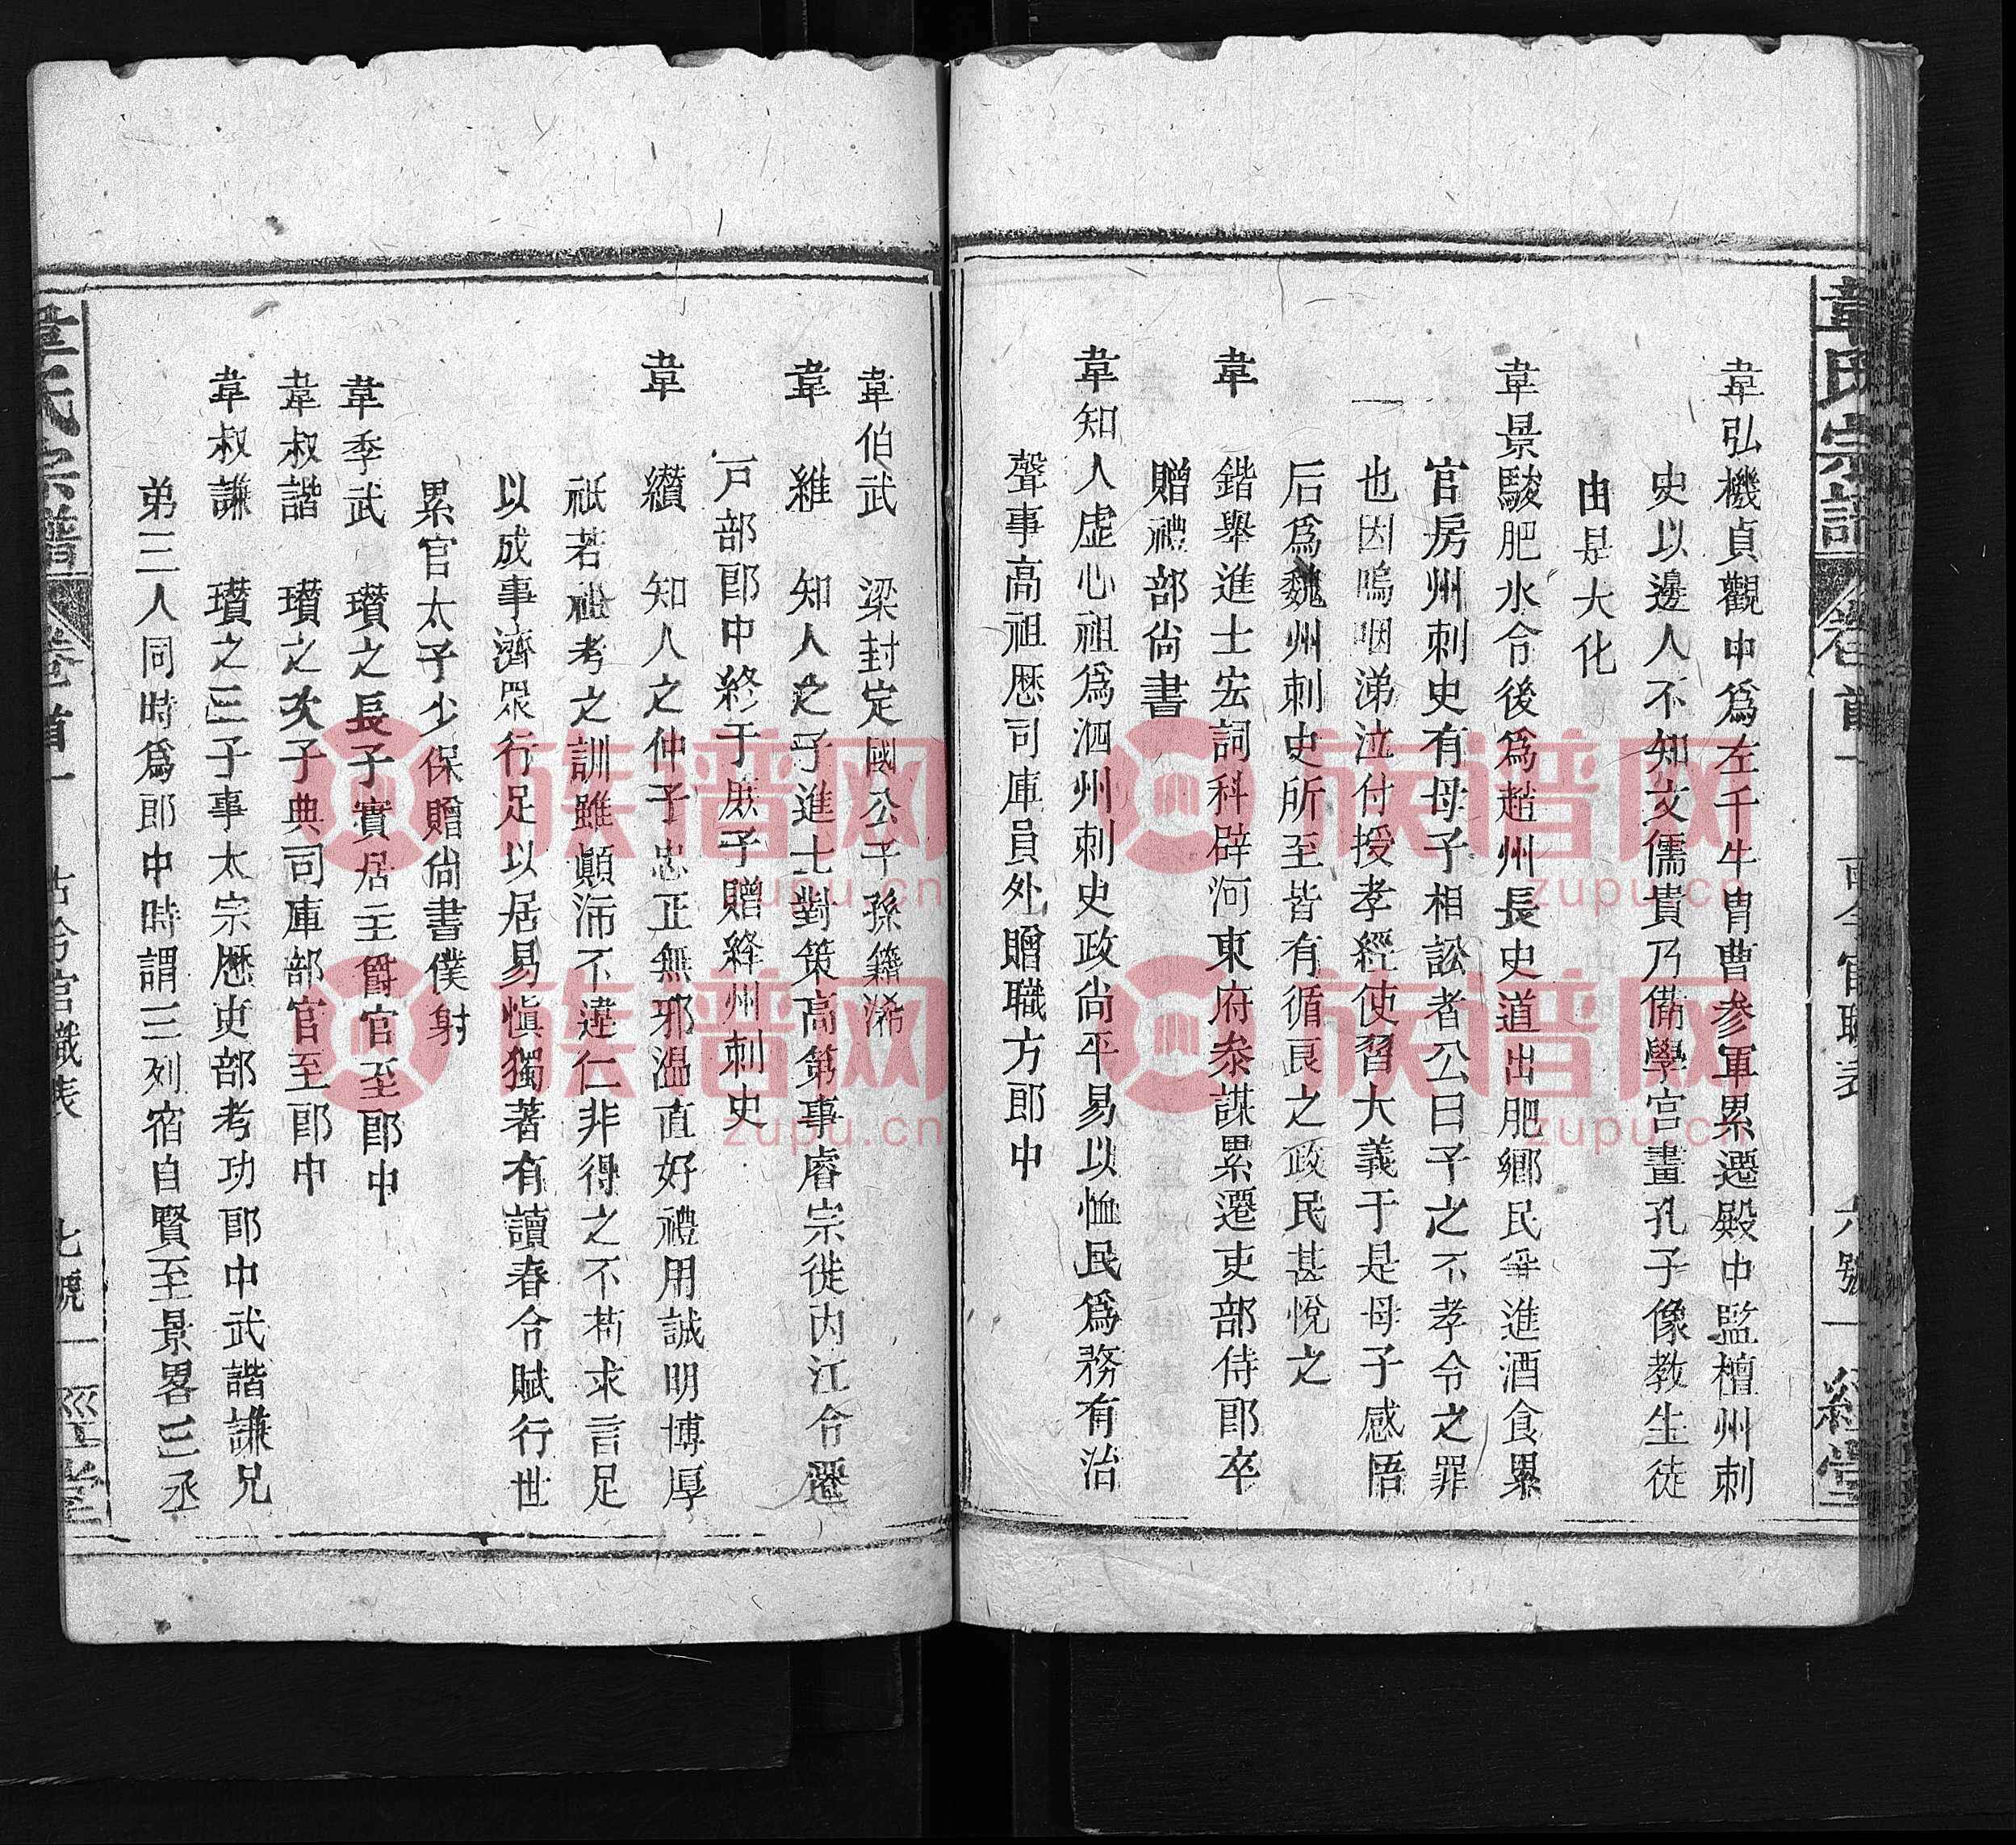 韋氏宗譜 卷首一 古今官職表 六號 一經堂
韋弘機貞觀中爲左千牛胄曹參軍累遷殿中監檀州刺
史以邊人不知文儒貴乃備學宫畫孔子像教生徒
由是大化
韋景駿肥水令後爲趙州長史道出肥鄉民爭進酒食累
官房州刺史有母子相訟者公曰子之不孝令之罪
也因嗚咽涕泣付授孝經使習大義于是母子感悟
后爲魏州刺史所至皆有循良之政民甚悅之
韋 鍇舉進士宏詞科辟河東府叅謀累遷吏部侍郎卒
贈禮部尙書
韋知人虚心祖爲泗州刺史政尙平易以恤民爲務有治
聲事高祖歷司庫員外贈職方郎中
韋伯武 梁封定國公子孫籍浠
韋 維 知人之子進士對策高第事睿宗徙内江令遷
戸部郎中終于庶子贈絳州刺史
韋 纘 知人之仲子忠正無邪温直好禮用誠明博厚
祇若祖考之訓雖顛沛不違仁非得之不苟求言足
以成事濟眾行足以居易愼獨著有讀春令賦行世
累官太子少保贈尙書僕射
韋季武 瓚之長子賓居主爵官至郎中
韋叔諧 瓚之次子典司庫部官至郎中
韋叔謙 瓚之三子事太宗歷吏部考功郎中武諧謙兄
弟三人同時爲郎中時謂三列宿自賢至景畧三丞
韋氏宗譜 卷首一 古今官職表 七號 一經堂
族谱网
zupu.cn
族谱网
zupu.cn
族谱网
zupu.cn
族谱网
zupu.cn